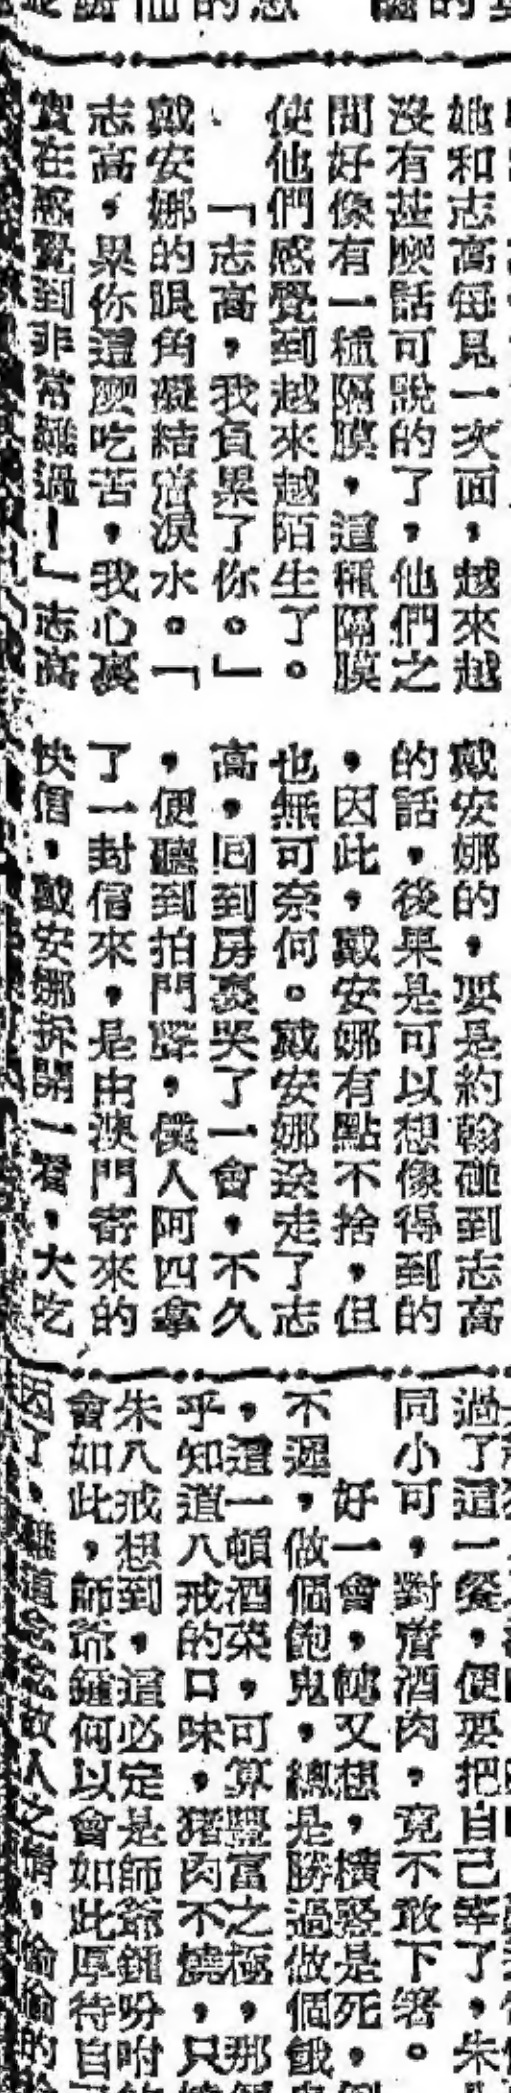 她和志高每見一次面，越來越
沒有甚麼話可說的了，他們之
間好像有一種隔膜，這種隔膜
使他們感覺到越來越陌生了。
「志高，我負累了你。」
戴安娜的眼角凝結着淚水。「
志高，累你這麼吃苦，我心裏
實在感覺到非常難過！」志高
戴安娜的，要是約翰碰到志高
的話，後果是可以想像得到的
，因此，戴安娜有點不捨，但
也無可奈何。戴安娜送走了志
高，回到房裏哭了一會，不久
，便聽到拍門聲，僕人阿四拿
了一封信來，是由澳門寄來的
快信，戴安娜拆開一看，大吃
過了這一餐，便要把自己宰了，朱
同小可，對着酒肉，竟不敢下箸。
好一會，他又想，橫豎是死，
不遲，做個飽鬼，總是勝過做個餓
，這一頓酒菜，可算豐富之極，那
乎知道八戒的口味，猪肉不燒，只
朱八戒想到，這必定是師爺鍾吩咐
會如此，師爺鍾何以會如此厚待自
因了，難道念念故人之情，偷偷的